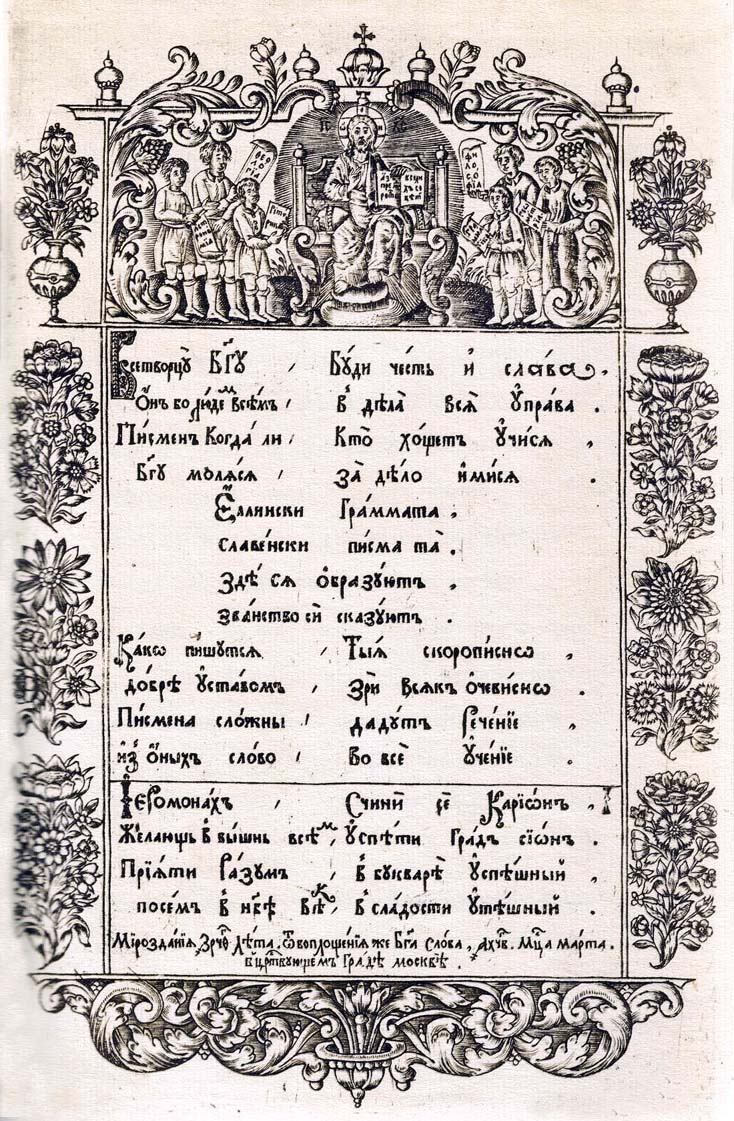 Всетворцꙋ Бг҃ꙋ / Бꙋди че́сть и҆ сла́ва ,
Ѻ҆нъ бо люде́м всѣ́мъ / в̾ дѣ́ла всѧ̀ ᲂу҆пра́ва .
Пи́сменъ когда́ ли / Кто̀ хо́щетъ ᲂу҆чи́сѧ ,
Бг҃ꙋ молѧ́сѧ / За̀ дѣ́ло и҆ми́сѧ .
Е҆́ллински Гра́ммата ,
славе́нски писма та̀ .
здѣ́ сѧ ѻ҆бразꙋ́ютъ ,
зва́нство сѝ сказꙋ́ютъ .
Ка́кѡ пи́шꙋтсѧ / Ты́ѧ скоропи́снѡ ,
до́брѣ ᲂу҆ста́вомъ / Зрѝ всѧ́къ ѻ҆чеви́снѡ .
Писмена сло́жны / даду́тъ Рече́нїе ,
и҆з̾ ѻ҆́ныхъ сло́во / Во всѐ ᲂу҆че́нїе .
І҆еромона́хъ / Счини́ сѐ Карїѡ́нъ ,
Жела́ющь в̾ вы́шнь всѣ́м / ᲂу҆спѣ́ти гра́дъ сїѡ́нъ .
Прїѧ́ти Ра́зꙋмъ / в̾ бꙋкварѣ̀ ᲂу҆спѣ́шный ,
посе́мъ в̾ нб҃ѣ вѣ́к / в̾ сла́дости ᲂу҆тѣ́шный .
Мїрозда́нїѧ , ЗРЧ҃В Лѣ́та . ѿ воплоще́нїѧ же Бг҃а сло́ва , АХЧ҃В . Мц҃а Ма́рта .
В̾ црⷭ҇твꙋющемъ гра́дѣ москвѣ̀ .